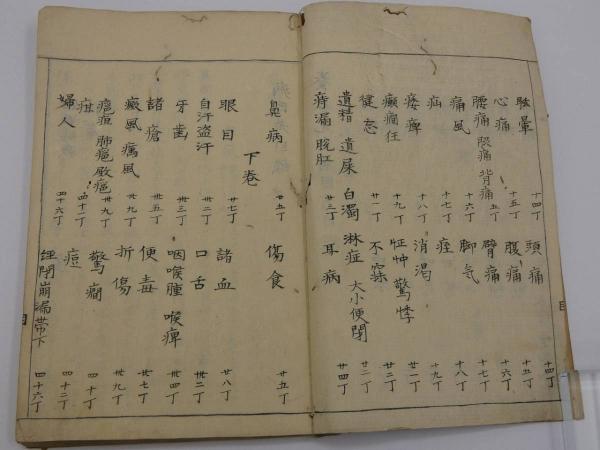 眩暈 十四丁 頭痛 十四丁
心痛 十五丁 腹痛 十五丁
腰痛 背痛 十五丁 臂痛 十六丁
痛風 十六丁 脚气 十七丁
疝 十七丁 痓 十八丁
痿痺 十八丁 消渇 十九丁
癲癇狂 十九丁 怔忡 驚悸 廿一丁
健忘 廿一丁 不寐 廿二丁
遺精 遺尿 白濁 淋症 大小便閉 廿二丁
痔漏 脱肛 廿三丁 耳病 廿四丁
鼻病 廿五丁 傷食 廿五丁
下巻
眼目 廿七丁 諸血 廿八丁
自汗盗汗 卅二丁 口舌 卅二丁
牙歯 卅三丁 咽喉腫 喉痺 卅四丁
諸瘡 卅五丁 便毒 卅七丁
癜風 癘風 卅九丁 折傷 卅九丁
肺癰 卅九丁 驚癇 四十丁
疳 四十一丁 痘 四十二丁
婦人 四十六丁 経閉崩漏帯下 四十六丁
目